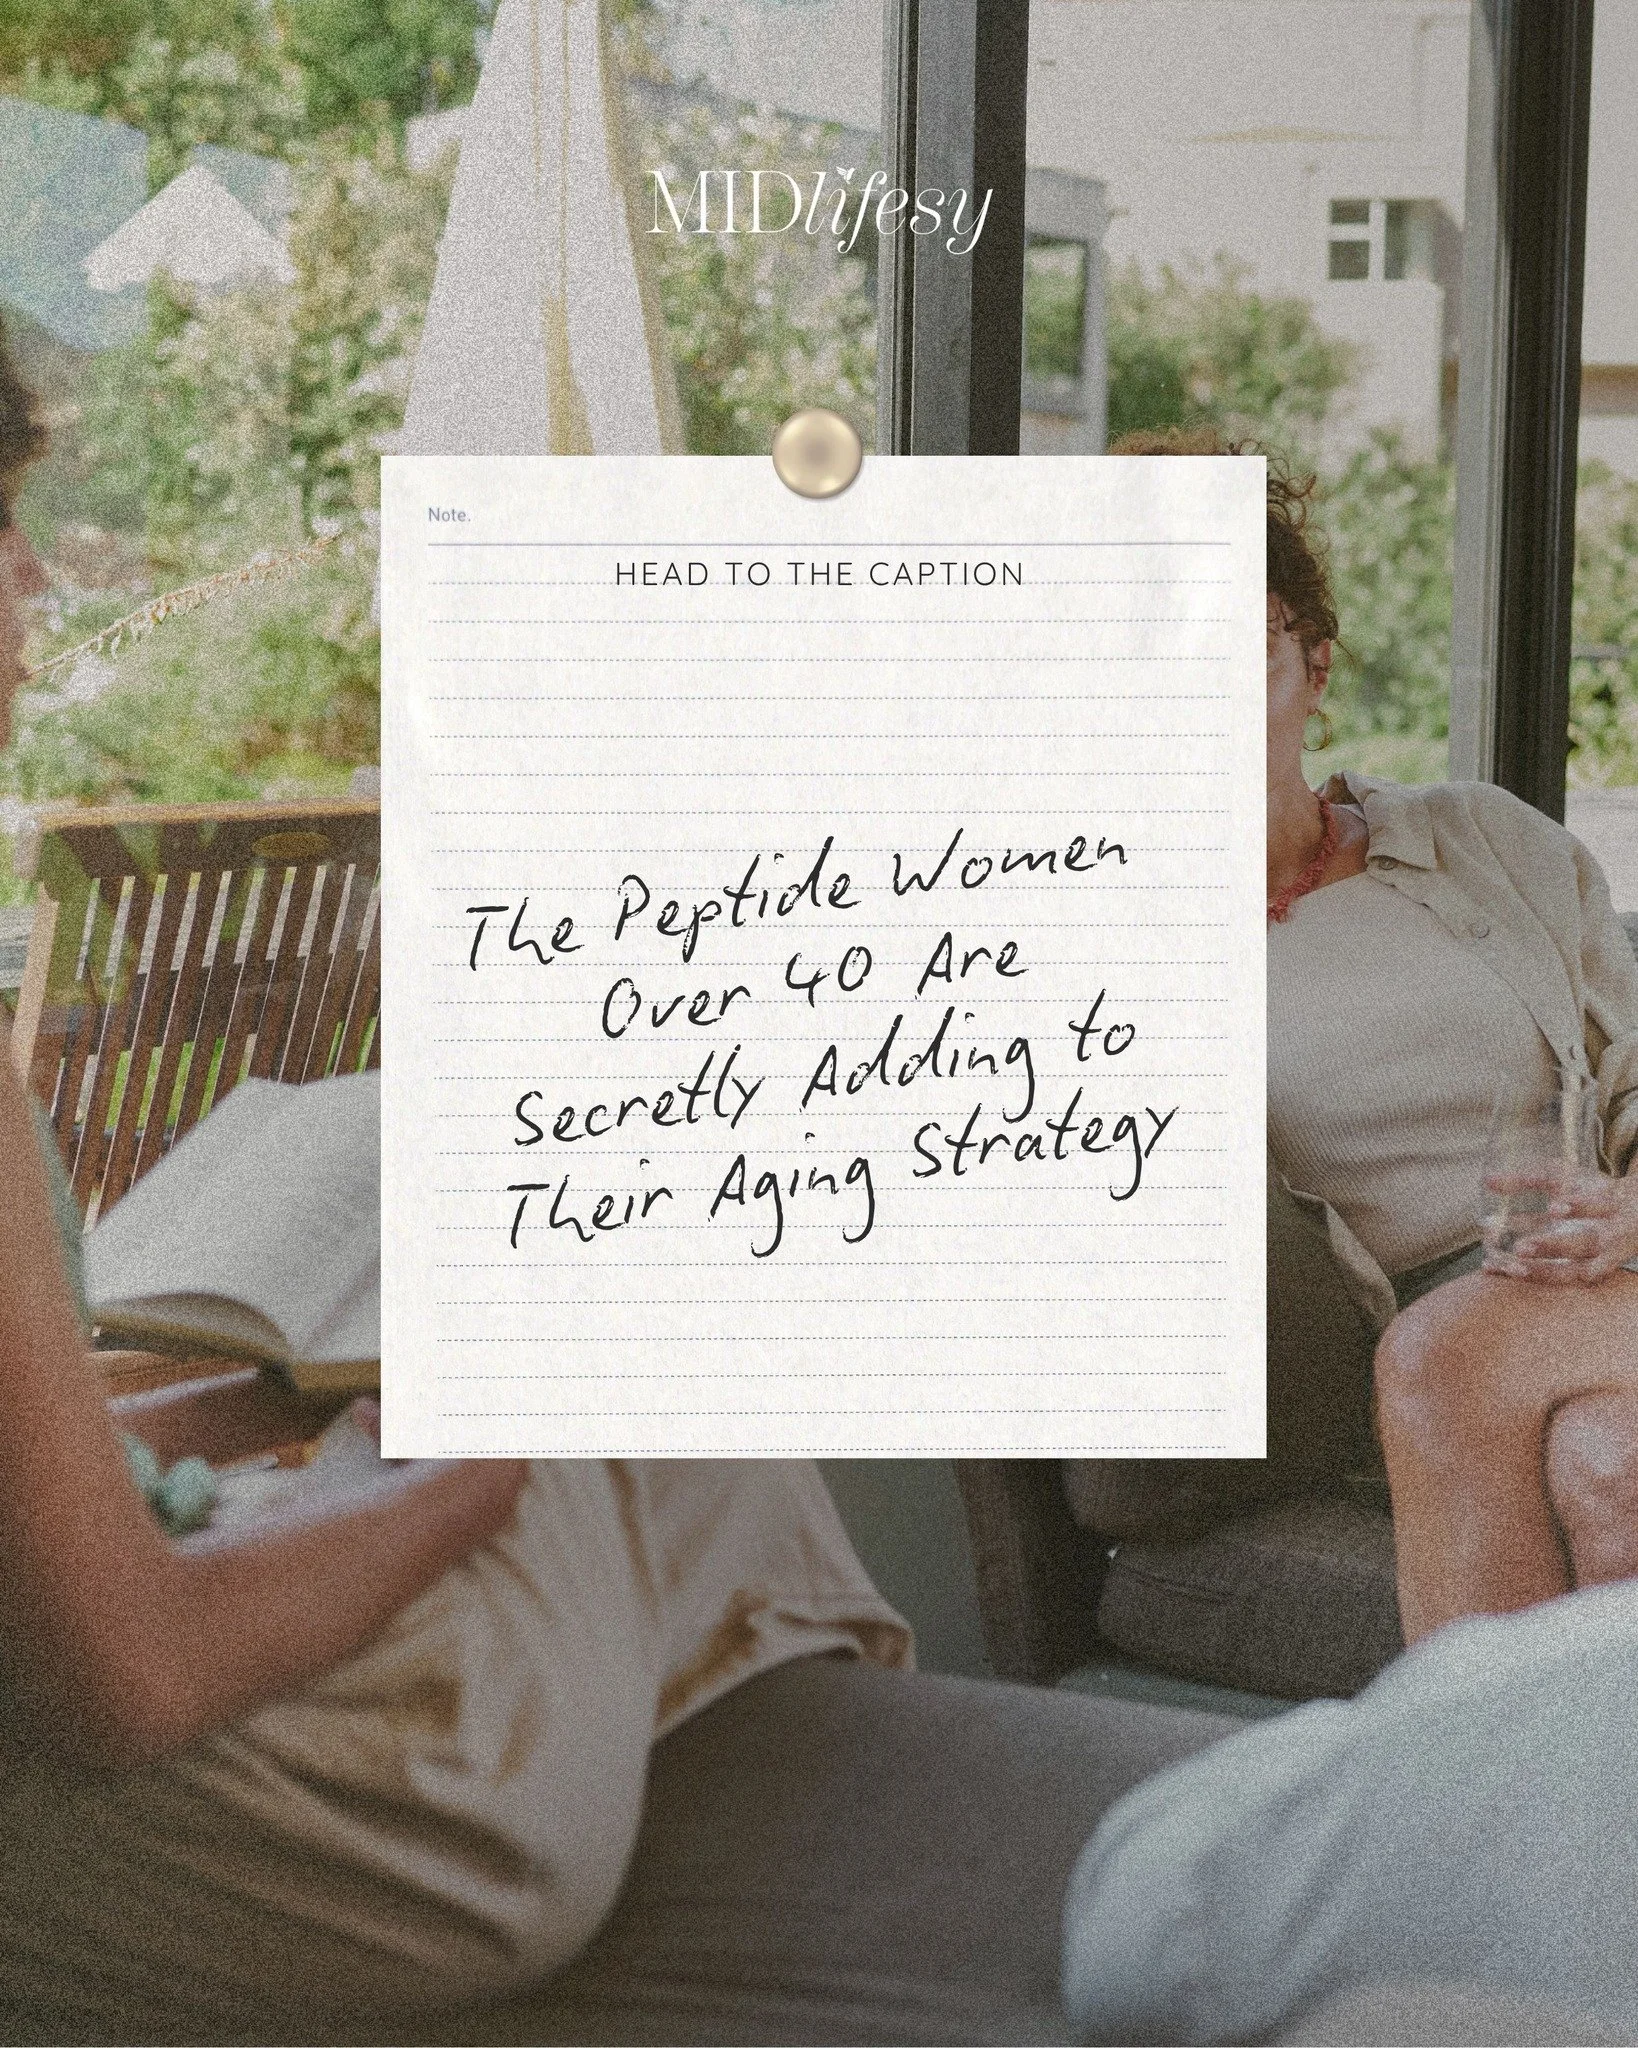 MIDlifesy
Note.
HEAD TO THE CAPTION
The Peptide Women
Over 40 Are
Secretly Adding to
Their Aging Strategy